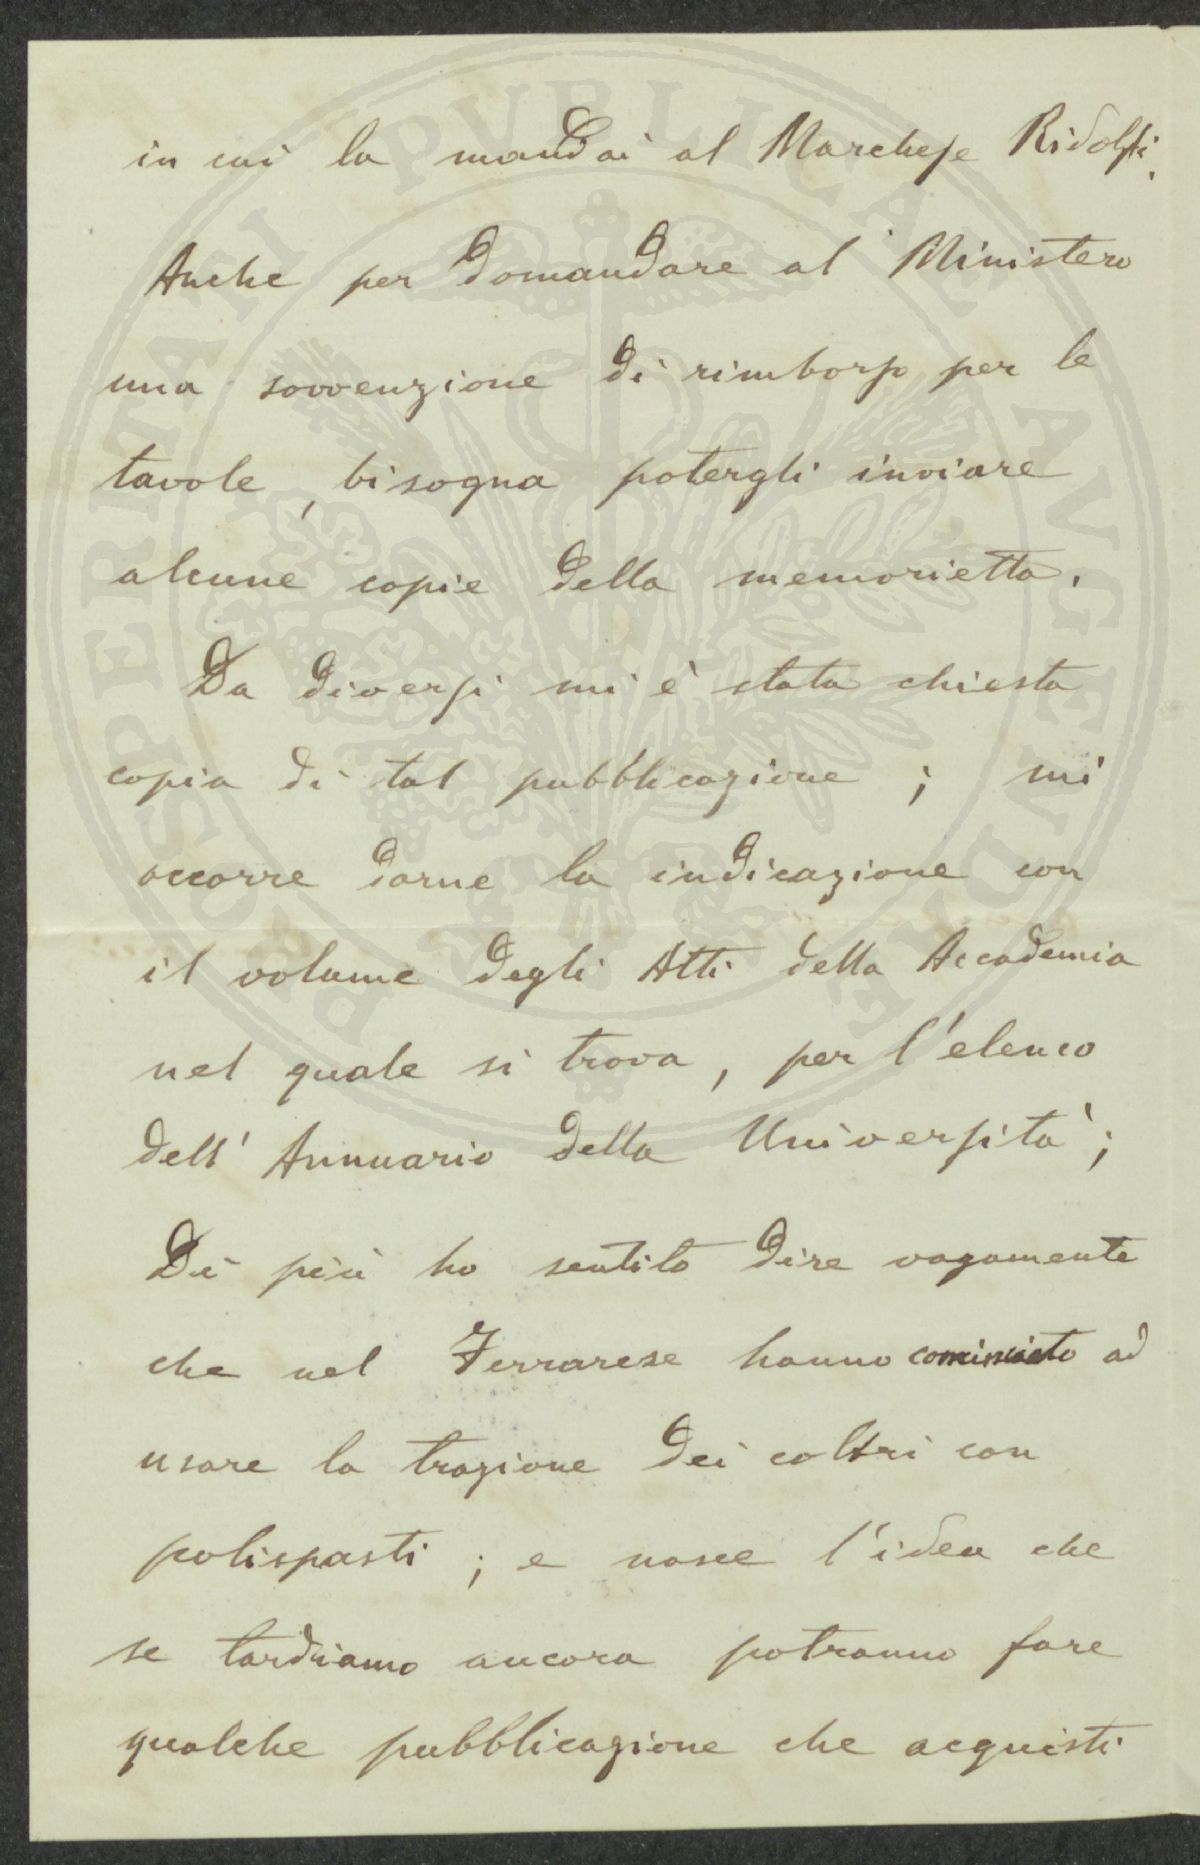 in cui la mandai al Marchese Ridolfi.
Anche per domandare al Ministero
una sovvenzione di rimborso per le
tavole, bisogna potergli inviare
alcune copie della memorietta.
Da diversi mi è stata chiesta
copia di tal pubblicazione; mi
occorre darne la indicazione con
il volume degli Atti della Accademia
nel quale si trova, per l'elenco
dell'Annuario della Università;
Di più ho sentito dire vagamente
che nel Ferrarese hanno cominciato ad
usare la trazione dei coltri con
polispasti; e nasce l'idea che
se tardiamo ancora potranno fare
qualche pubblicazione che acquisti
PROSPERITATI PVBLICAE AVGENDAE